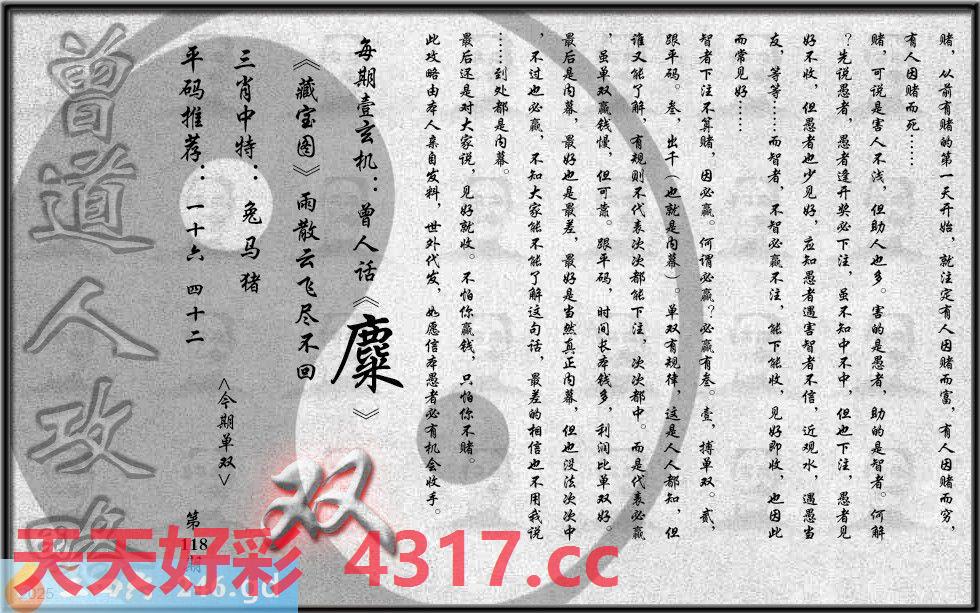 赌，从前有赌的第一天开始，就注定有人因赌而富，有人因赌而穷，
有人因赌而死……
赌，可说是害人不浅，但助人也多。害的是愚者，助的是智者。何解
？先说愚者，愚者逢开奖必下注，虽不知中不中，但也下注，愚者见
好不收，但愚者也少见好，应知愚者遇害智者不信，近观水，遇愚当
友，等等……而智者，不智必赢不注，能下能收，见好即收，也因此
而常见好……
智者下注不算赌，因必赢。何谓必赢？必赢有叁。壹，搏单双。贰，
跟平码。叁，出千（也就是内幕）。单双有规律，这是人人都知，但
谁又能了解，有规则不代表次次都能下注，次次都中。而是代表必赢
，虽单双赢钱慢，但可靠。跟平码，时间长本钱多，利润比单双好。
最后是内幕，最好也是最差，最好是当然真正内幕，但也没法次次中
，不过也必赢，不知大家能不能了解这句话，最差的相信也不用我说
……到处都是内幕。
最后还是对大家说，见好就收。不怕你赢钱，只怕你不赌。
此攻略由本人亲自发料，世外代发，如愿信本愚者必有机会收手。
每期壹玄机：曾人话《麋》
《藏宝图》雨散云飞尽不回
三肖中特：兔马猪
平码推荐：一十六 四十二
<今期单双>
双
第118期
曾道人攻略
天天好彩 4317.cc
2025